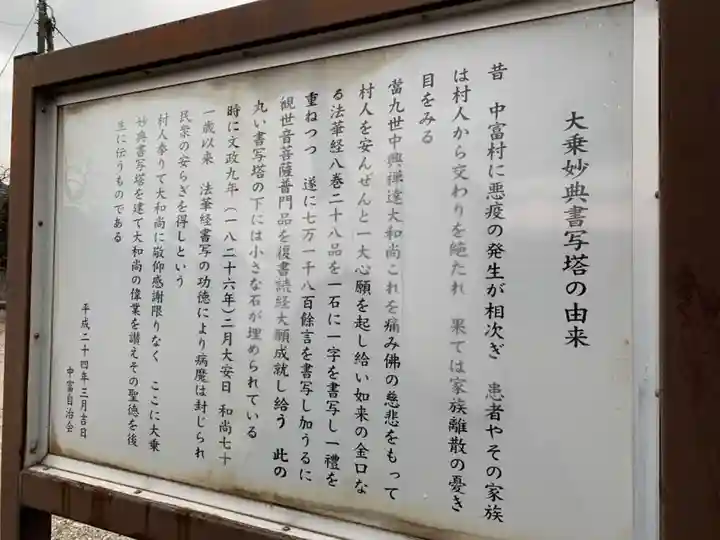 大乗妙典書写塔の由来
昔　中富村に悪疫の発生が相次ぎ　患者やその家族
は村人から交わりを絶たれ　果ては家族離散の憂き
目をみる
當九世中興禅達大和尚これを痛み佛の慈悲をもって
村人を安んぜんと一大心願を起し給い如来の金口な
る法華経八巻二十八品を一石に一字を書写し一禮を
重ねつつ　遂に七万一千八百餘言を書写し加うるに
観世音菩薩普門品を復書読経大願成就し給う　此の
丸い書写塔の下には小さな石が埋められている
時に文政九年（一八二十六年）二月大安日　和尚七十
一歳以来　法華経書写の功徳により病魔は封じられ
民衆の安らぎを得しという
村人参りて大和尚に敬仰感謝限りなく　ここに大乗
妙典書写塔を建て大和尚の偉業を讃えその聖徳を後
生に伝うものである
平成二十四年三月吉日
中富自治会